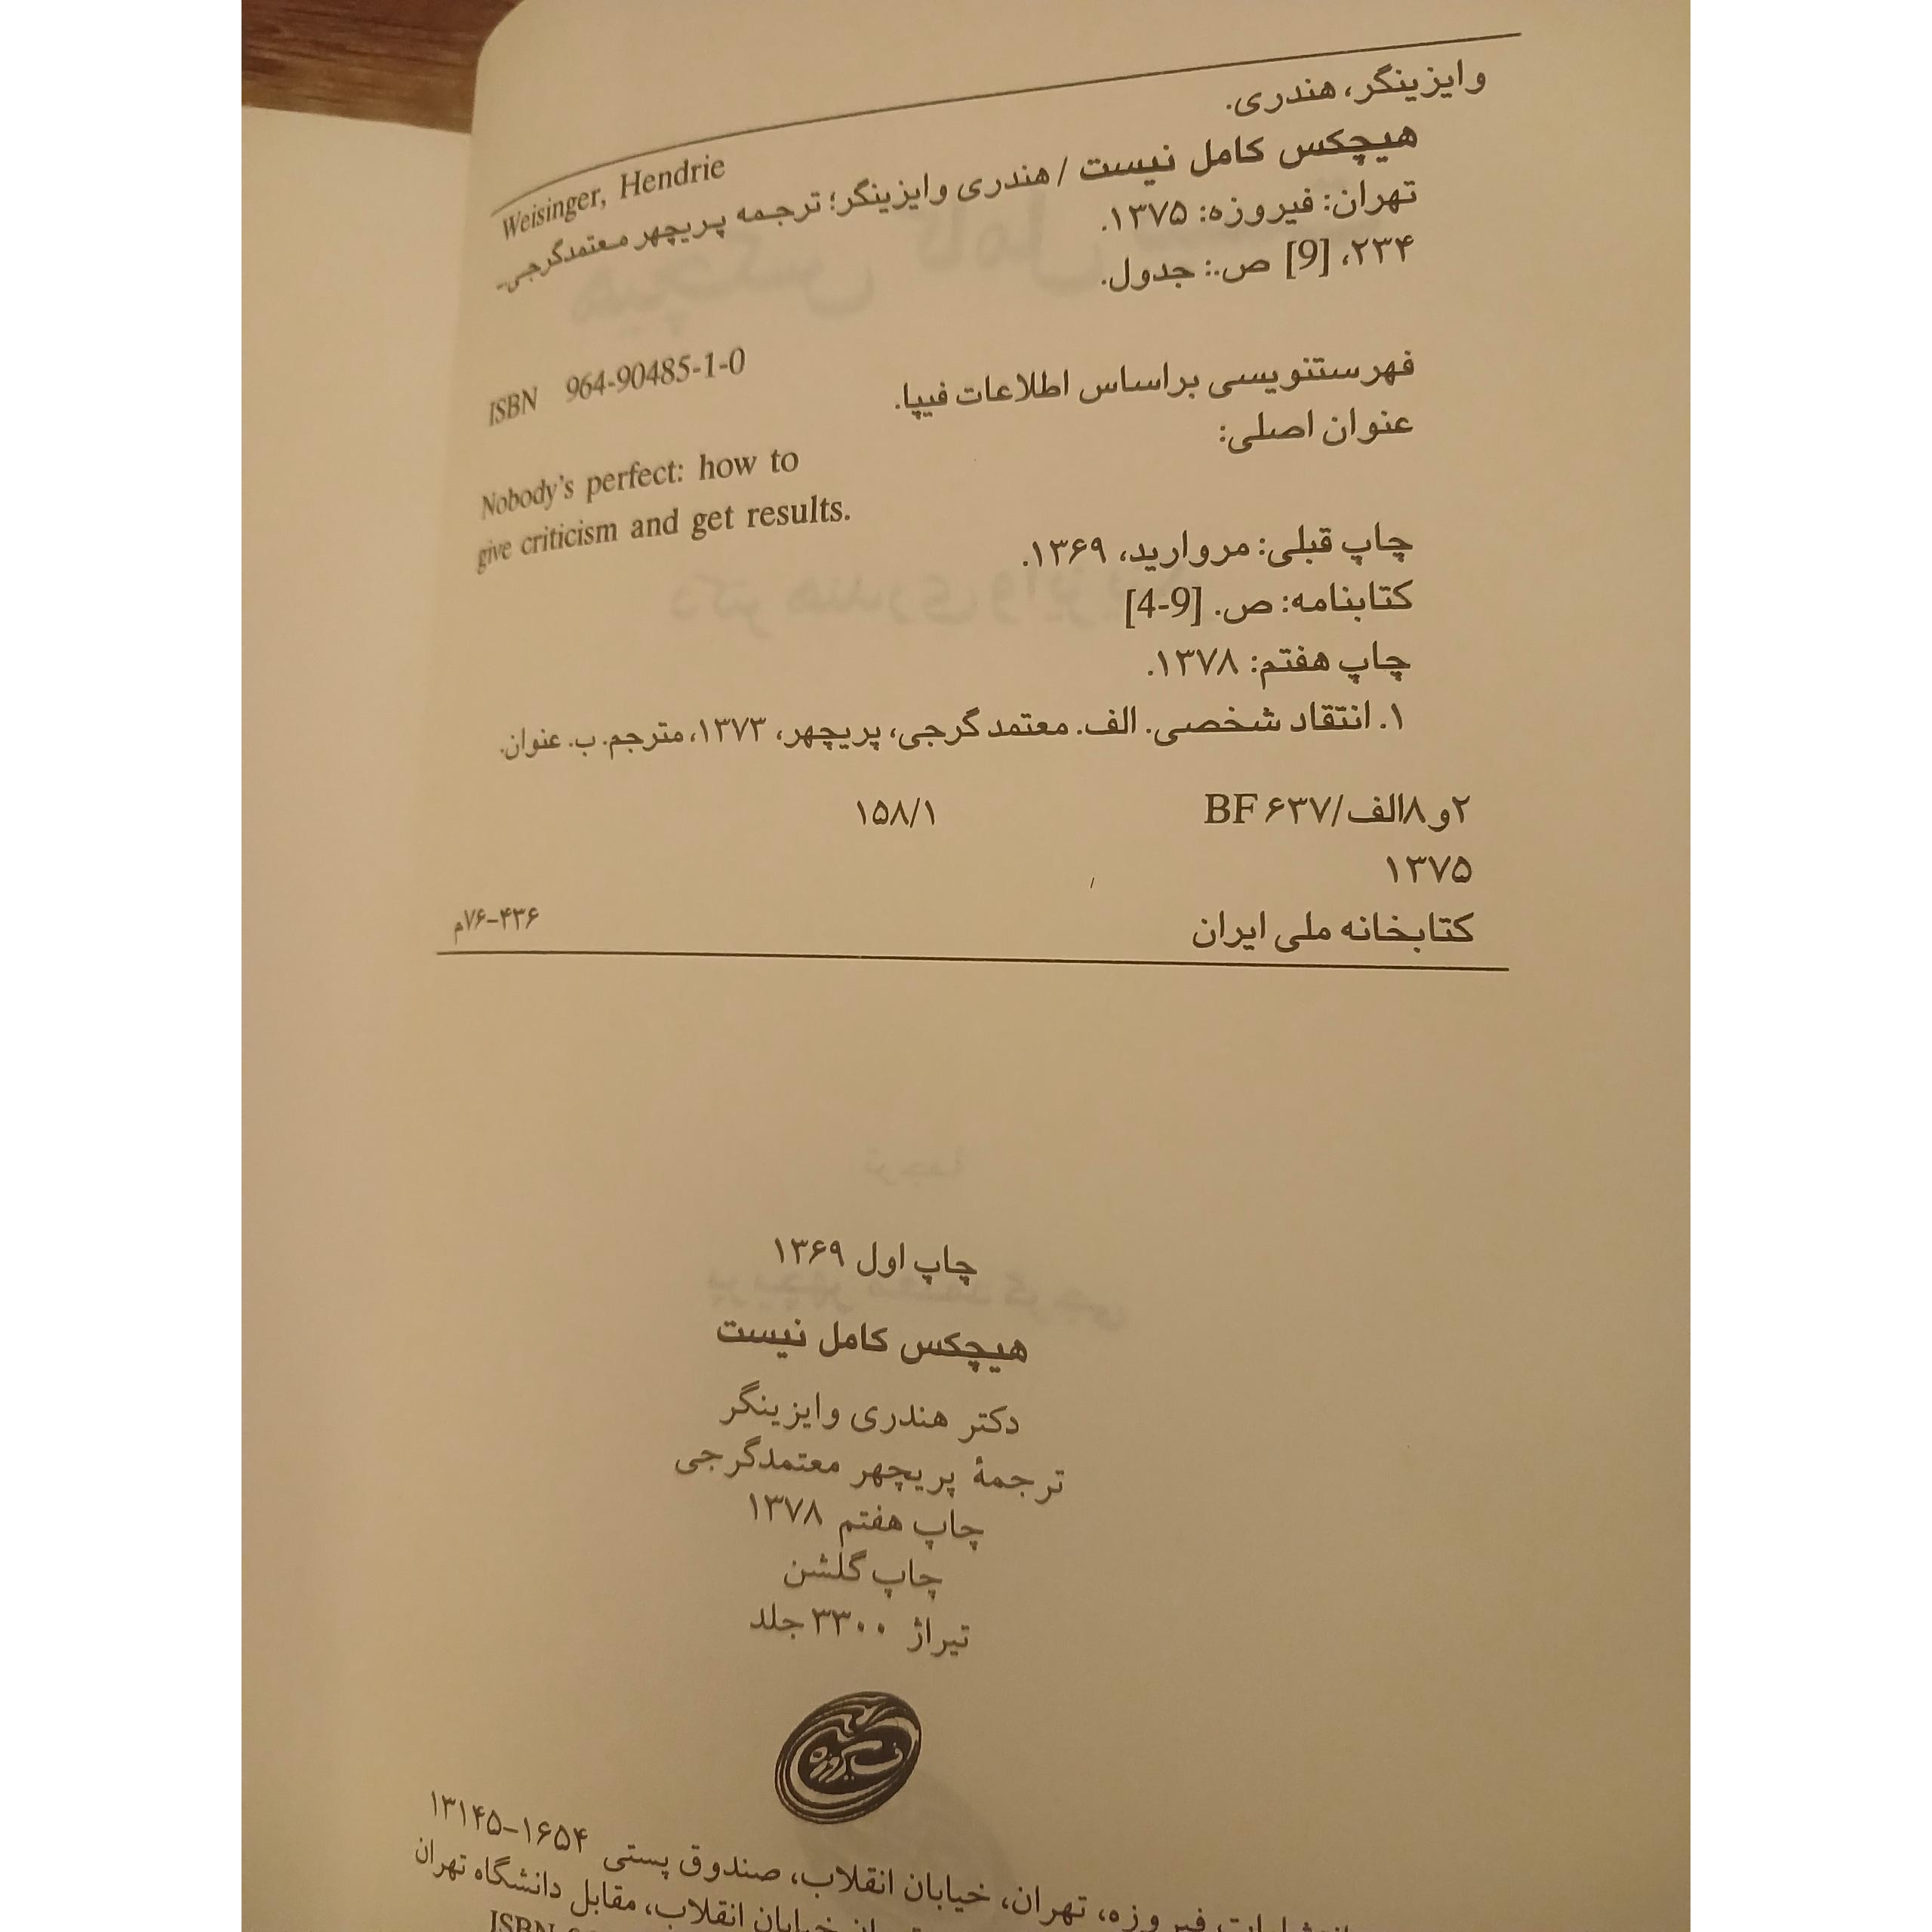 وایزینگر، هندری.
Weisinger, Hendrie
هیچکس کامل نیست / هندری وایزینگر؛ ترجمه پریچهر معتمدگرجی.-
تهران: فیروزه: ۱۳۷۵.
۲۳۴، [9] ص.: جدول.
ISBN 964-90485-1-0
فهرستنویسی براساس اطلاعات فیپا.
عنوان اصلی:
Nobody's perfect: how to
give criticism and get results.
چاپ قبلی: مروارید، ۱۳۶۹.
کتابنامه: ص. [4-9]
چاپ هفتم: ۱۳۷۸.
۱. انتقاد شخصی. الف. معتمد گرجی، پریچهر، ۱۳۷۳، مترجم. ب. عنوان.
۲و۸الف/BF ۶۳۷ ۱۵۸/۱
۱۳۷۵
کتابخانه ملی ایران ۴۳۶-۷۶م
چاپ اول ۱۳۶۹
هیچکس کامل نیست
دکتر هندری وایزینگر
ترجمهٔ پریچهر معتمدگرجی
چاپ هفتم ۱۳۷۸
چاپ گلشن
تیراژ ۳۳۰۰ جلد
فیروزه
انتشارات فیروزه، تهران، خیابان انقلاب، صندوق پستی ۱۶۵۴-۱۳۱۴۵
تهران خیابان انقلاب، مقابل دانشگاه تهران
ISBN